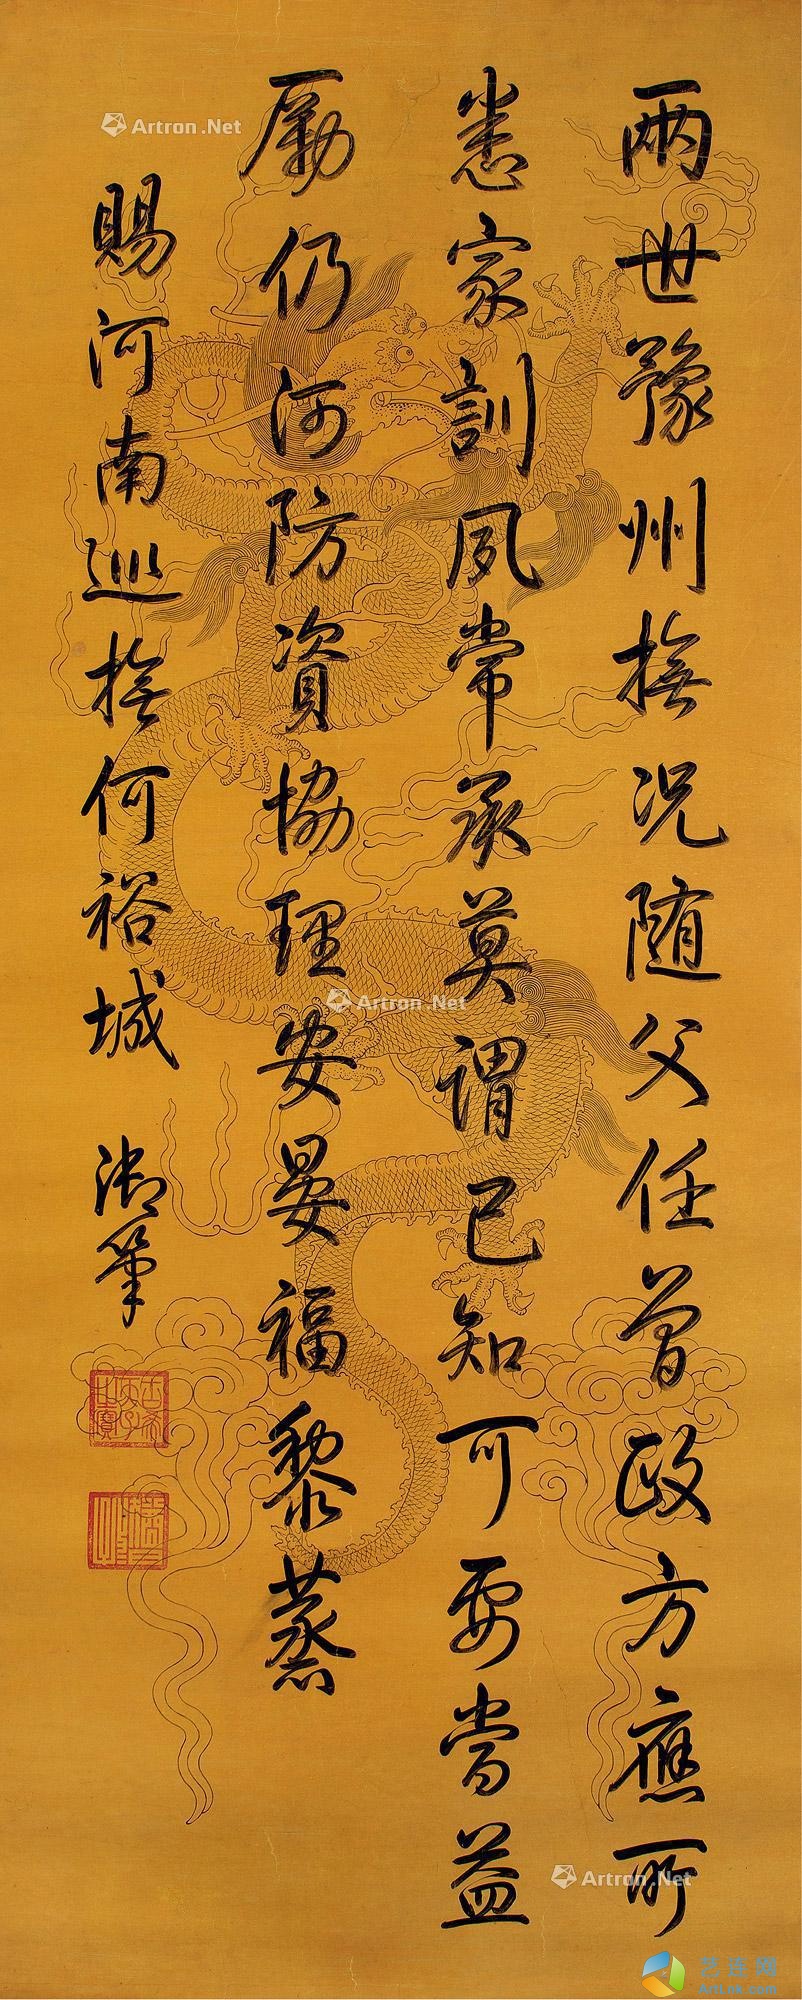 兩世豫州撫況随父任曾政方應所
悉家訓夙常承莫謂已知可要當益
勵仍河防資協理安晏福黎蒸
賜河南巡撫何裕城 御筆
古希天子之寶
猶日孜孜
Artron.Net
Artron.Net
Artron.Net
ArtLnk.com